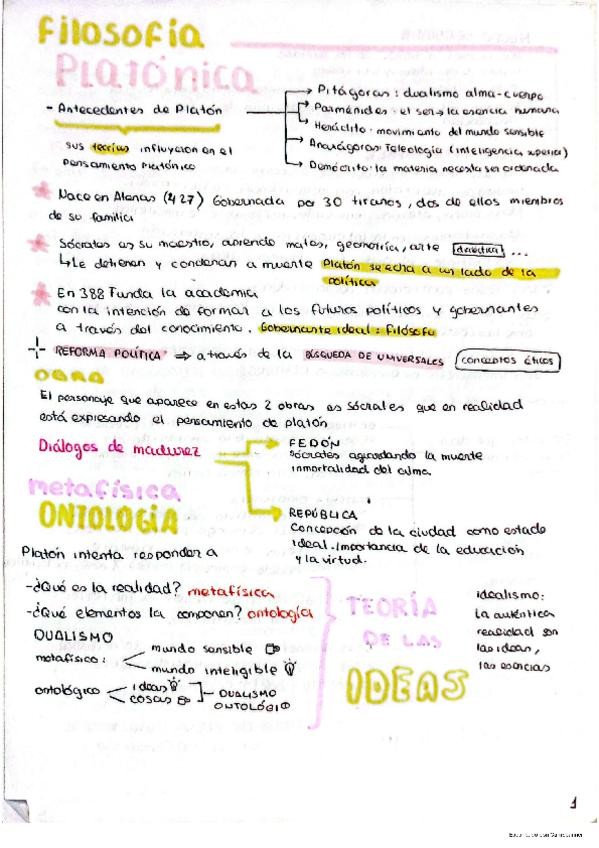 Filosofía
Platónica
- Antecedentes de Platón
Pitágoras: dualismo alma-cuerpo
Parménides: el ser → la esencia humana
Heráclito: movimiento del mundo sensible
Anaxágoras: Teleología (inteligencia superior)
Demócrito: la materia necesita ser ordenada
sus teorías influyeron en el
pensamiento platónico
Nace en Atenas (427) Gobernada por 30 tiranos, dos de ellos miembros
de su familia
Sócrates es su maestro, aprende mates, geometría, arte ...
↳ Le detienen y condenan a muerte Platón se echa a un lado de la
política
En 388 Funda la academia
con la intención de formar a los futuros políticos y gobernantes
a través del conocimiento. Gobernante ideal: Filósofo
REFORMA POLÍTICA ⇒ a través de la BÚSQUEDA DE UNIVERSALES conceptos éticos
OBRA
El personaje que aparece en estas 2 obras es Sócrates que en realidad
está expresando el pensamiento de platón
Diálogos de madurez
FEDÓN
Sócrates aguardando la muerte
inmortalidad del alma
REPÚBLICA
Concepción de la ciudad como estado
ideal. Importancia de la educación
y la virtud.
metafísica
ONTOLOGÍA
Platón intenta responder a
-¿Qué es la realidad? metafísica
-¿Qué elementos la componen? ontología
DUALISMO
metafísico:
mundo sensible
mundo inteligible
ontológico
ideas
cosas
DUALISMO
ONTOLÓGICO
TEORÍA
DE LAS
IDEAS
idealismo:
la auténtica
realidad son
las ideas,
las esencias
1